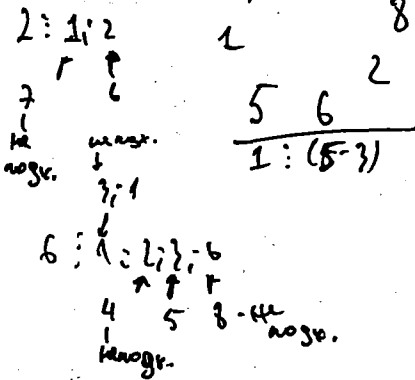 2 ⋮ 1; 2
7 6
не
подх.
3; 1
6 ⋮ 1; 2; 3; 6
4 5 8 - не
подх.
не подх.
1 8
2
5 6
1 ⋮ (5-3)